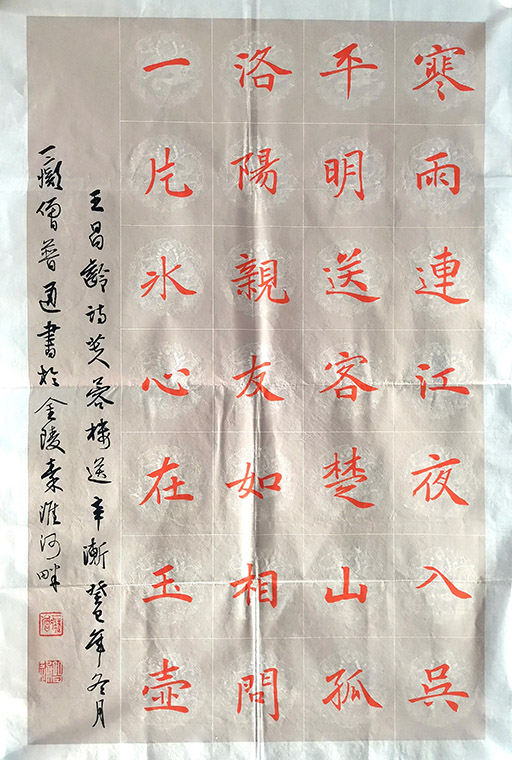 寒雨連江夜入吳
平明送客楚山孤
洛陽親友如相問
一片氷心在玉壺
王昌齡詩芙蓉樓送辛漸癸巳年冬月
一癡僧普通書於金陵秦淮河畔